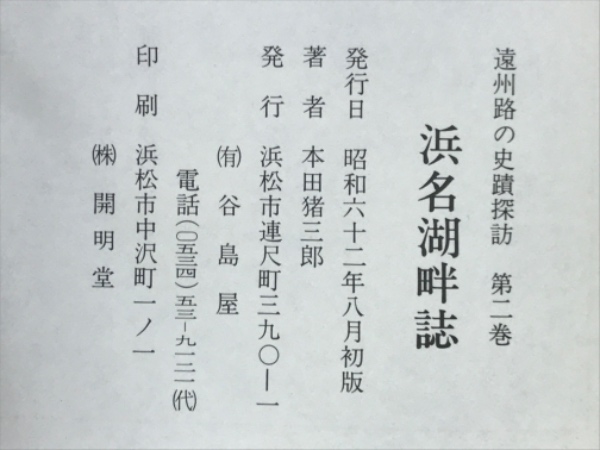 遠州路の史蹟探訪　第二巻
浜名湖畔誌
発行日　昭和六十二年八月初版
著者　本田猪三郎
発行　浜松市連尺町三九〇ー一
㈲谷島屋
電話（〇五三四）五三ー九一二一㈹
印刷　浜松市中沢町一ノ一
㈱開明堂